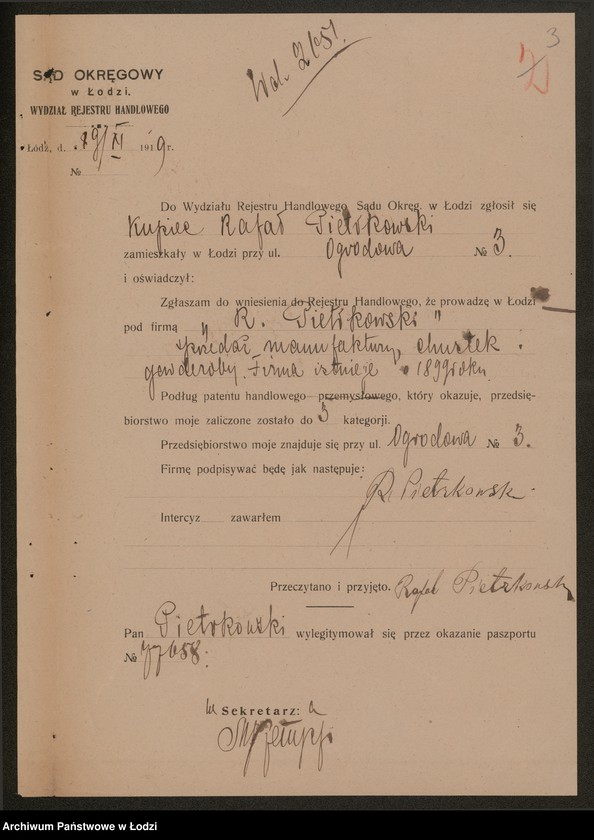 3
Wd. 2151.
SĄD OKRĘGOWY
w Łodzi.
WYDZIAŁ REJESTRU HANDLOWEGO
Łódź, d. 19/XI 1919 r.
№
Do Wydziału Rejestru Handlowego Sądu Okręg. w Łodzi zgłosił się
Kupiec Rafał Pietrkowski
zamieszkały w Łodzi przy ul. Ogrodowa № 3.
i oświadczył:
Zgłaszam do wniesienia do Rejestru Handlowego, że prowadzę w Łodzi
pod firmą „R. Pietrkowski"
sprzedaż manufaktury, chustek i
garderoby. Firma istnieje 1899 roku.
Podług patentu handlowego przemysłowego, który okazuje, przedsię-
biorstwo moje zaliczone zostało do 3 kategorji.
Przedsiębiorstwo moje znajduje się przy ul. Ogrodowa № 3.
Firmę podpisywać będę jak następuje:
R. Pietrkowski
Intercyz zawarłem
Przeczytano i przyjęto. Rafał Pietrkowski
Pan Pietrkowski wylegitymował się przez okazanie paszportu
№ 77658.
Sekretarz:
Archiwum Państwowe w Łodzi